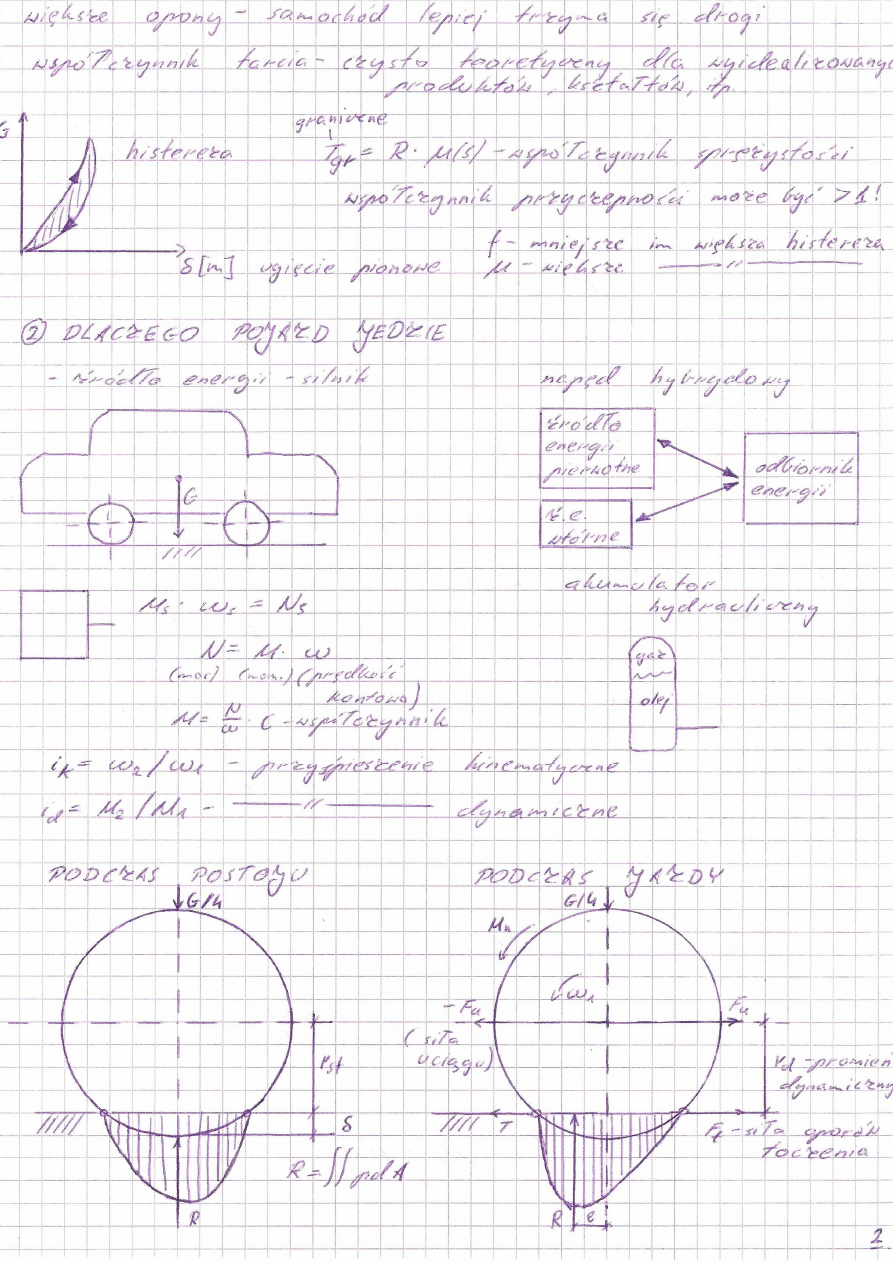 większe opony - samochód lepiej trzyma się drogi
współczynnik tarcia - czysto teoretyczny dla wyidealizowanyc
produktów, kształtów, itp.
G
histereza
graniczne
Tgr = R · μ(s) - współczynnik sprężystości
współczynnik przyczepności może być >1!
f - mniejsze im większa histereza
δ[m] ugięcie pionowe
μ - większe —〃—
② DLACZEGO POJAZD JEDZIE
- źródło energii - silnik
napęd hybrydowy
G
źródło
energii
pierwotne
odbiornik
energii
ź.e.
wtórne
akumulator
hydrauliczny
gaz
olej
Ms · ωs = Ns
N = M · ω
(moc) (mom.) (prędkość
kontowa)
M = N/ω · C - współczynnik
ik = ω2/ω1 - przyśpieszenie kinematyczne
id = M2/M1 - —〃— dynamiczne
PODCZAS POSTOJU
G/4
rst
δ
R = ∬ pdA
R
PODCZAS JAZDY
G/4
Mn
ω1
- Fu
(siła
uciągu)
Fu
rd - promień
dynamiczny
T
Ft - siła oporów
toczenia
R
e
2